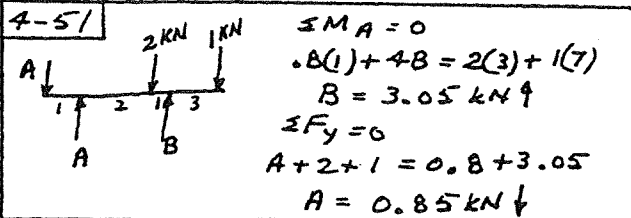 4-51
2 KN 1 KN
A
1 2 1 3
A B
ΣM A = 0
.8(1) + 4B = 2(3) + 1(7)
B = 3.05 kN ↑
ΣFy = 0
A + 2 + 1 = 0.8 + 3.05
A = 0.85 kN ↓